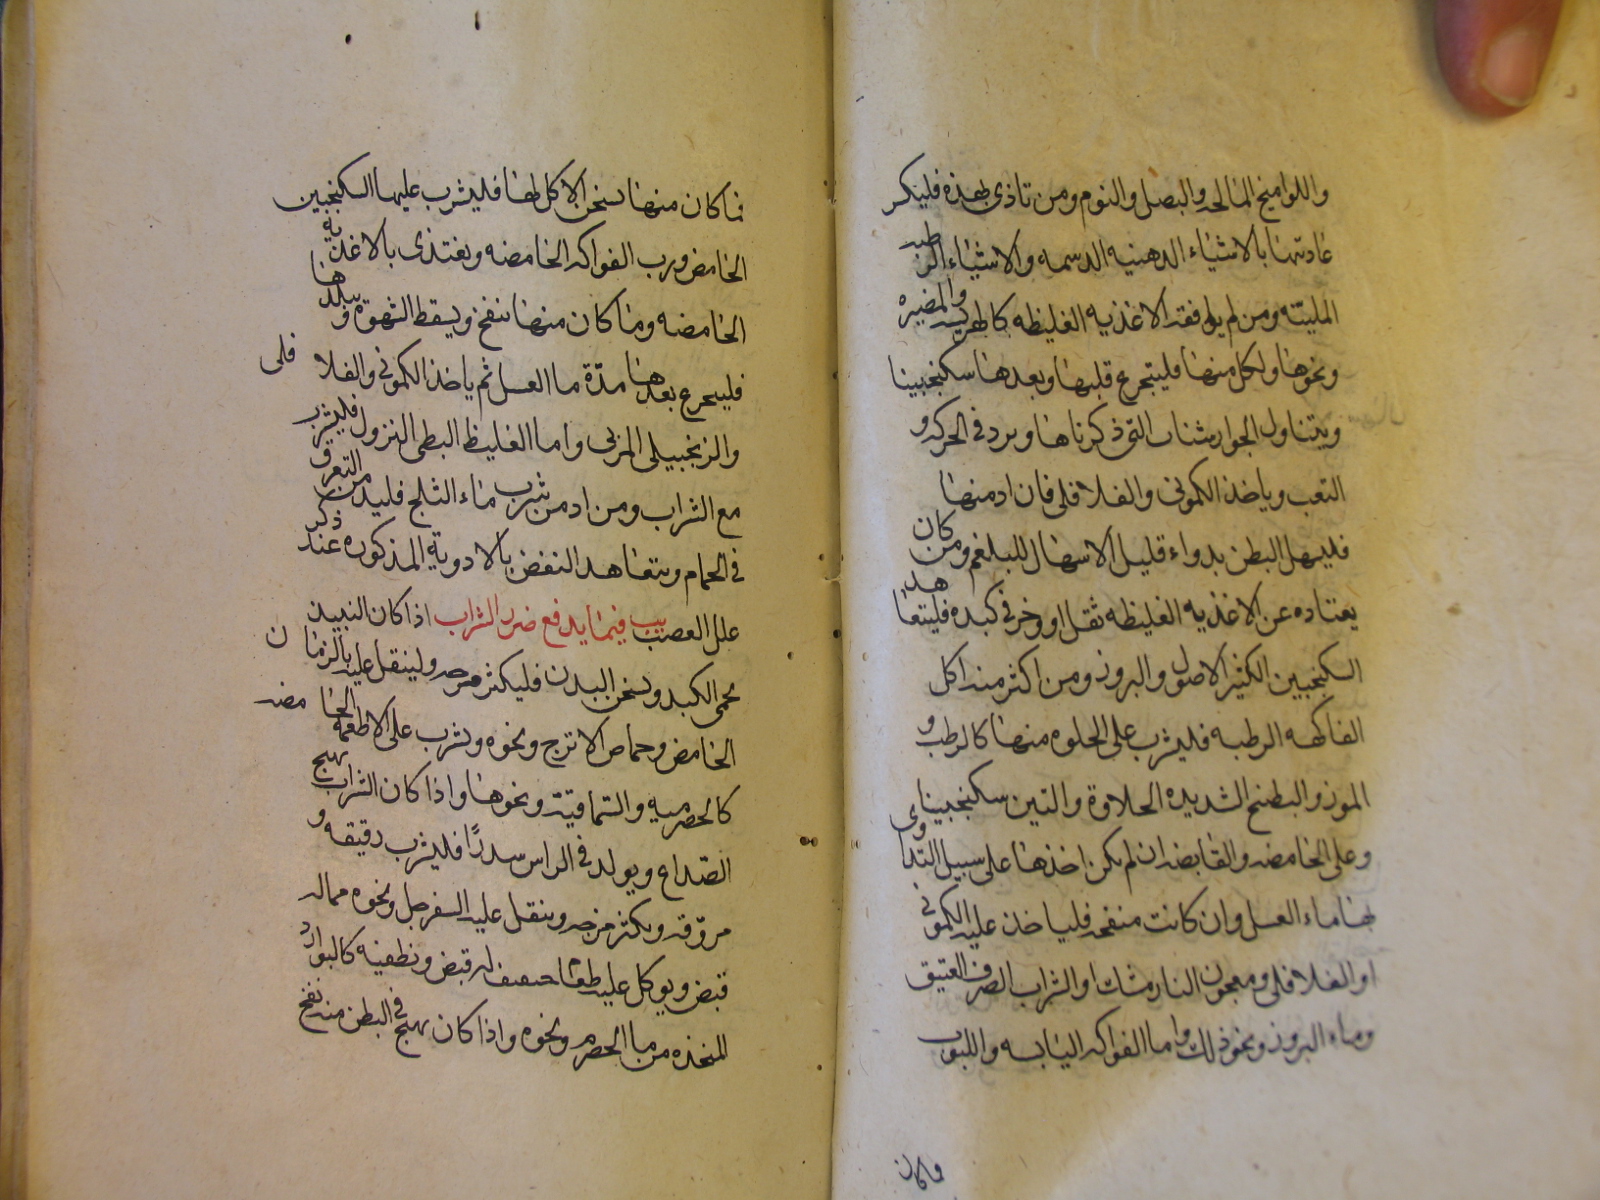 واللوامیخ المالحه والبصل والثوم ومن تاذی بهذه فلینکر
عادتها بالاشیاء الدهنیه الدسمه والاشیاء الرطبه
الملینه ومن لم یوافقه الاغذیه الغلیظه کالهریسه والمضیره
ونحوها ولکل منها فلیتجرع قبلها وبعدها سکنجبینا
ویتناول الجوارشنات التی ذکرناها ویرد فی الحرکه و
التعب ویاخذ الکمونی والفلافلی فان ادمنها
فلیسهل البطن بدواء قلیل الاسهال للبلغم ومن کان
یعتاده عن الاغذیه الغلیظه ثقل او وخز فی کبده فلیتعاهد
السکنجبین الکثیر الاصول والبزور ومن اکثر منه اکل
الفاکهه الرطبه فلیشرب علی الحلوه منها کالرطب و
الموز والبطیخ الشدیده الحلاوة والتین سکنجبینا
وعلی الحامضه والقابضه ان لم یکن اخذها علی سبیل التداوی
بها ماء العسل وان کانت منفخه فلیاخذ علیه الکمونی
او الفلافلی ومعجون النارمشک او الشراب الصرف العتیق
وماء البزور ونحو ذلک واما الفواکه الیابسه واللبوب
وکان
فما کان منها یسخن الاکل لها فلیشرب علیها السکنجبین
الحامض ورب الفواکه الحامضه ویغتذی بالاغذیه
الحامضه وما کان منها ینفخ ویسقط الشهوه ویبلدها
فلیتجرع بعدها مدة ما العسل ثم یاخذ الکمونی والفلافلی
والزنجبیلی المربی واما الغلیظ البطی النزول فلیشرب
مع الشراب ومن ادمن شرب ماء الثلج فلیدمن التعرق
فی الحمام ویتعاهد النفض بالادویة المذکوره عند ذکر
علل العصب یب فیما یدفع ضرر الشراب اذا کان النبیذ
یحمی الکبد ویسخن البدن فلیکثر مزجه ولیتنقل علیه بالرمان
الحامض وحماض الاترج ونحوه ویشرب علی الاطعمه الحامضه
کالحصرمیه والسماقیة ونحوها واذا کان الشراب یهیج
الصداع ویولد فی الراس سدرًا فلیشرب دقیقه و
مروقه ویکثر مزجه ویتنقل علیه السفرجل ونحوه مماله
قبض ویوکل علیه طعاما خفیف له قبض وتطفیه کالبوارد
المتخذه من ما الحصرم ونحوه واذا کان یهیج فی البطن منه نفخ